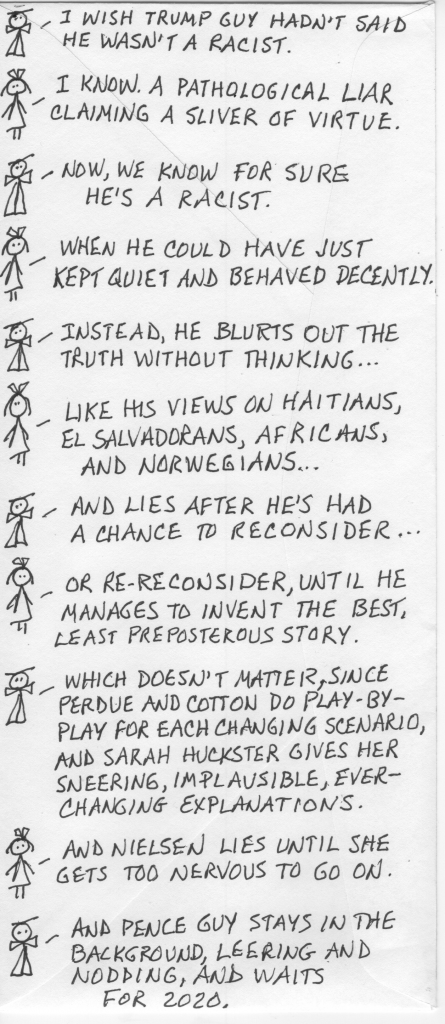 I WISH TRUMP GUY HADN'T SAID
HE WASN'T A RACIST.
I KNOW. A PATHOLOGICAL LIAR
CLAIMING A SLIVER OF VIRTUE.
NOW, WE KNOW FOR SURE
HE'S A RACIST.
WHEN HE COULD HAVE JUST
KEPT QUIET AND BEHAVED DECENTLY.
INSTEAD, HE BLURTS OUT THE
TRUTH WITHOUT THINKING...
LIKE HIS VIEWS ON HAITIANS,
EL SALVADORANS, AFRICANS,
AND NORWEGIANS...
AND LIES AFTER HE'S HAD
A CHANCE TO RECONSIDER...
OR RE-RECONSIDER, UNTIL HE
MANAGES TO INVENT THE BEST,
LEAST PREPOSTEROUS STORY.
WHICH DOESN'T MATTER, SINCE
PERDUE AND COTTON DO PLAY-BY-
PLAY FOR EACH CHANGING SCENARIO,
AND SARAH HUCKSTER GIVES HER
SNEERING, IMPLAUSIBLE, EVER-
CHANGING EXPLANATIONS.
AND NIELSEN LIES UNTIL SHE
GETS TOO NERVOUS TO GO ON.
AND PENCE GUY STAYS IN THE
BACKGROUND, LEERING AND
NODDING, AND WAITS
FOR 2020.